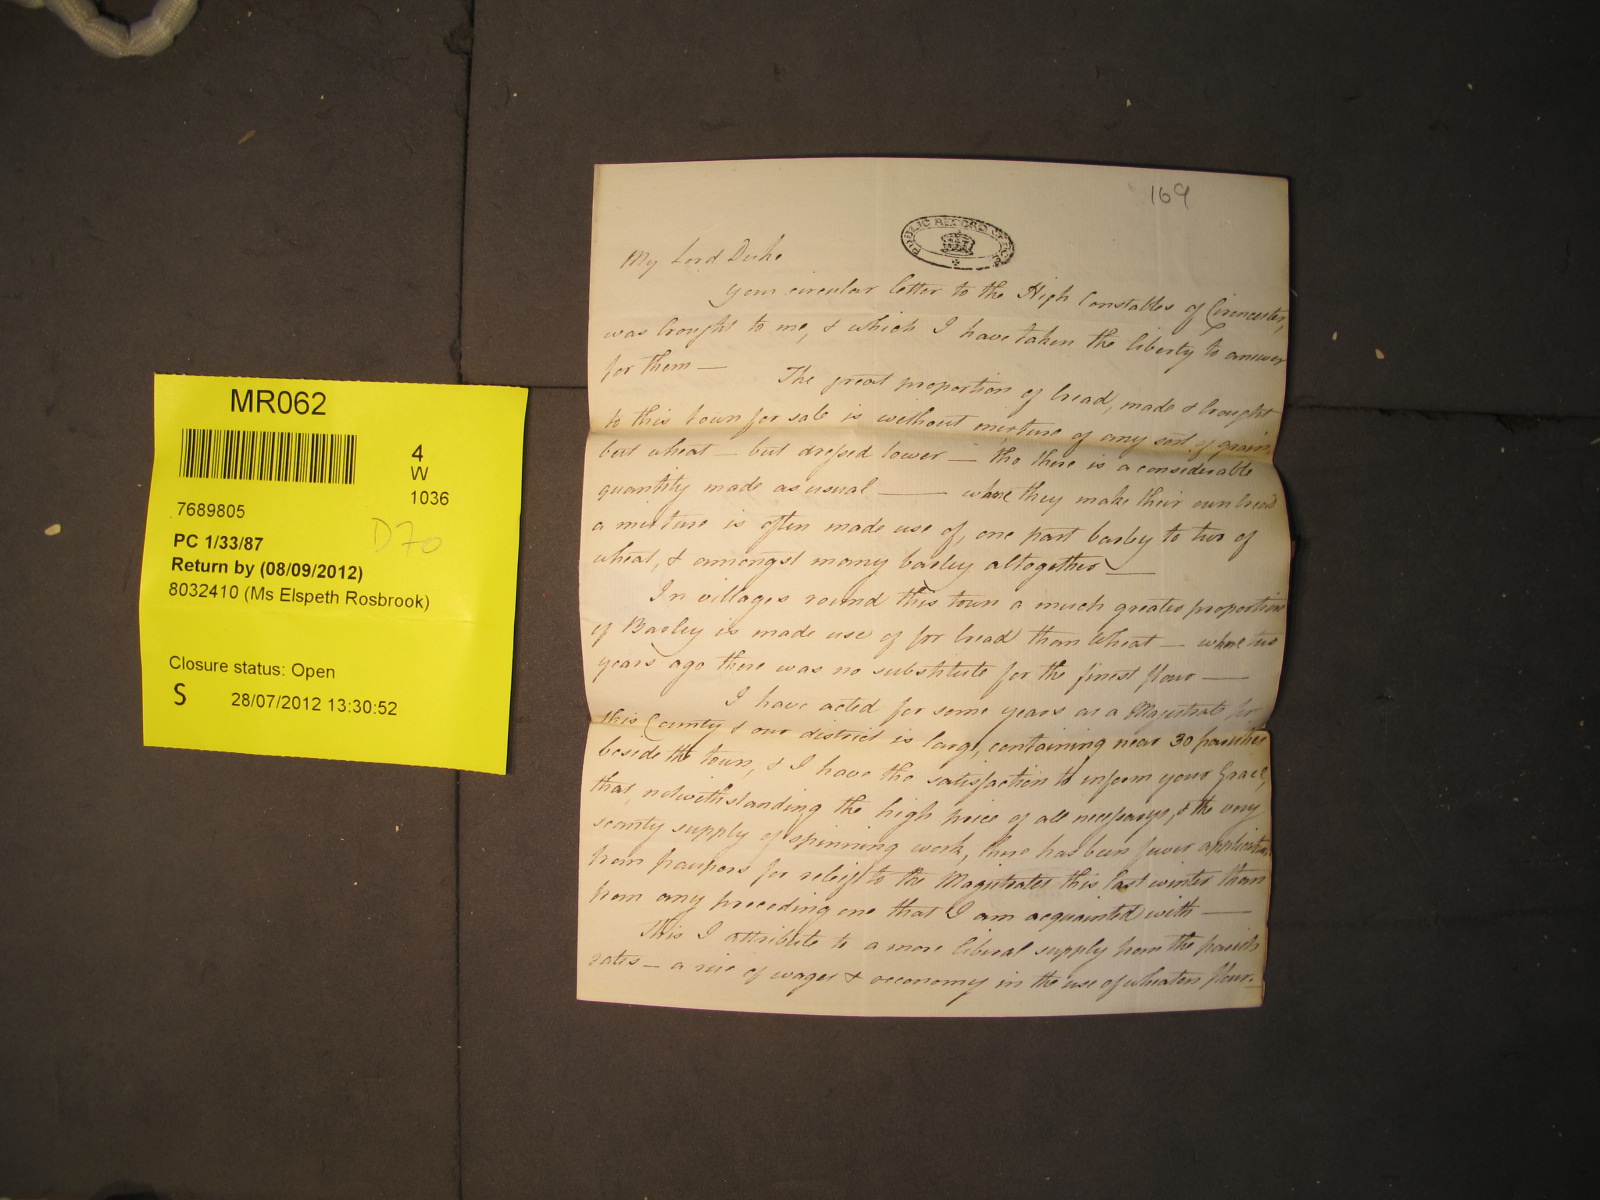 MR062
4
W
1036
7689805
D70
PC 1/33/87
Return by (08/09/2012)
8032410 (Ms Elspeth Rosbrook)
Closure status: Open
S 28/07/2012 13:30:52
169
PUBLIC RECORD OFFICE
My Lord Duke
your circular letter to the High Constables of Cirencester,
was brought to me, & which I have taken the liberty to answer
for them —
The great proportion of bread, made & brought
to this town for sale is without mixture of any sort of grain,
but wheat — but dressed lower — tho there is a considerable
quantity made as usual — where they make their own bread
a mixture is often made use of, one part barley to two of
wheat, & amongst many barley altogether —
In villages round this town a much greater proportion
of Barley is made use of for bread than Wheat — where two
years ago there was no substitute for the finest flour —
I have acted for some years as a Magistrate for
this County & our district is large, containing near 30 parishes
beside the town, & I have the satisfaction to inform your Grace,
that, notwithstanding the high price of all necessarys, & the very
scanty supply of spinning work, there has been fewer applications
from paupers for relief to the Magistrates this last winter than
from any preceding one that I am acquainted with —
This I attribute to a more liberal supply from the parish
rates — a rise of wages & oeconomy in the use of wheaten flour.